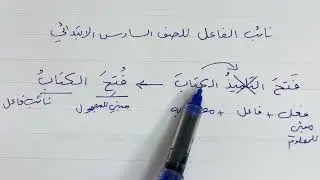 نائب الفاعل للصف السادس الابتدائي
فَتَحَ التلميذُ الكتابَ ← فُتِحَ الكتابُ
فعل + فاعل + به مبني للمجهول نائب فاعل
مبني للمعلوم